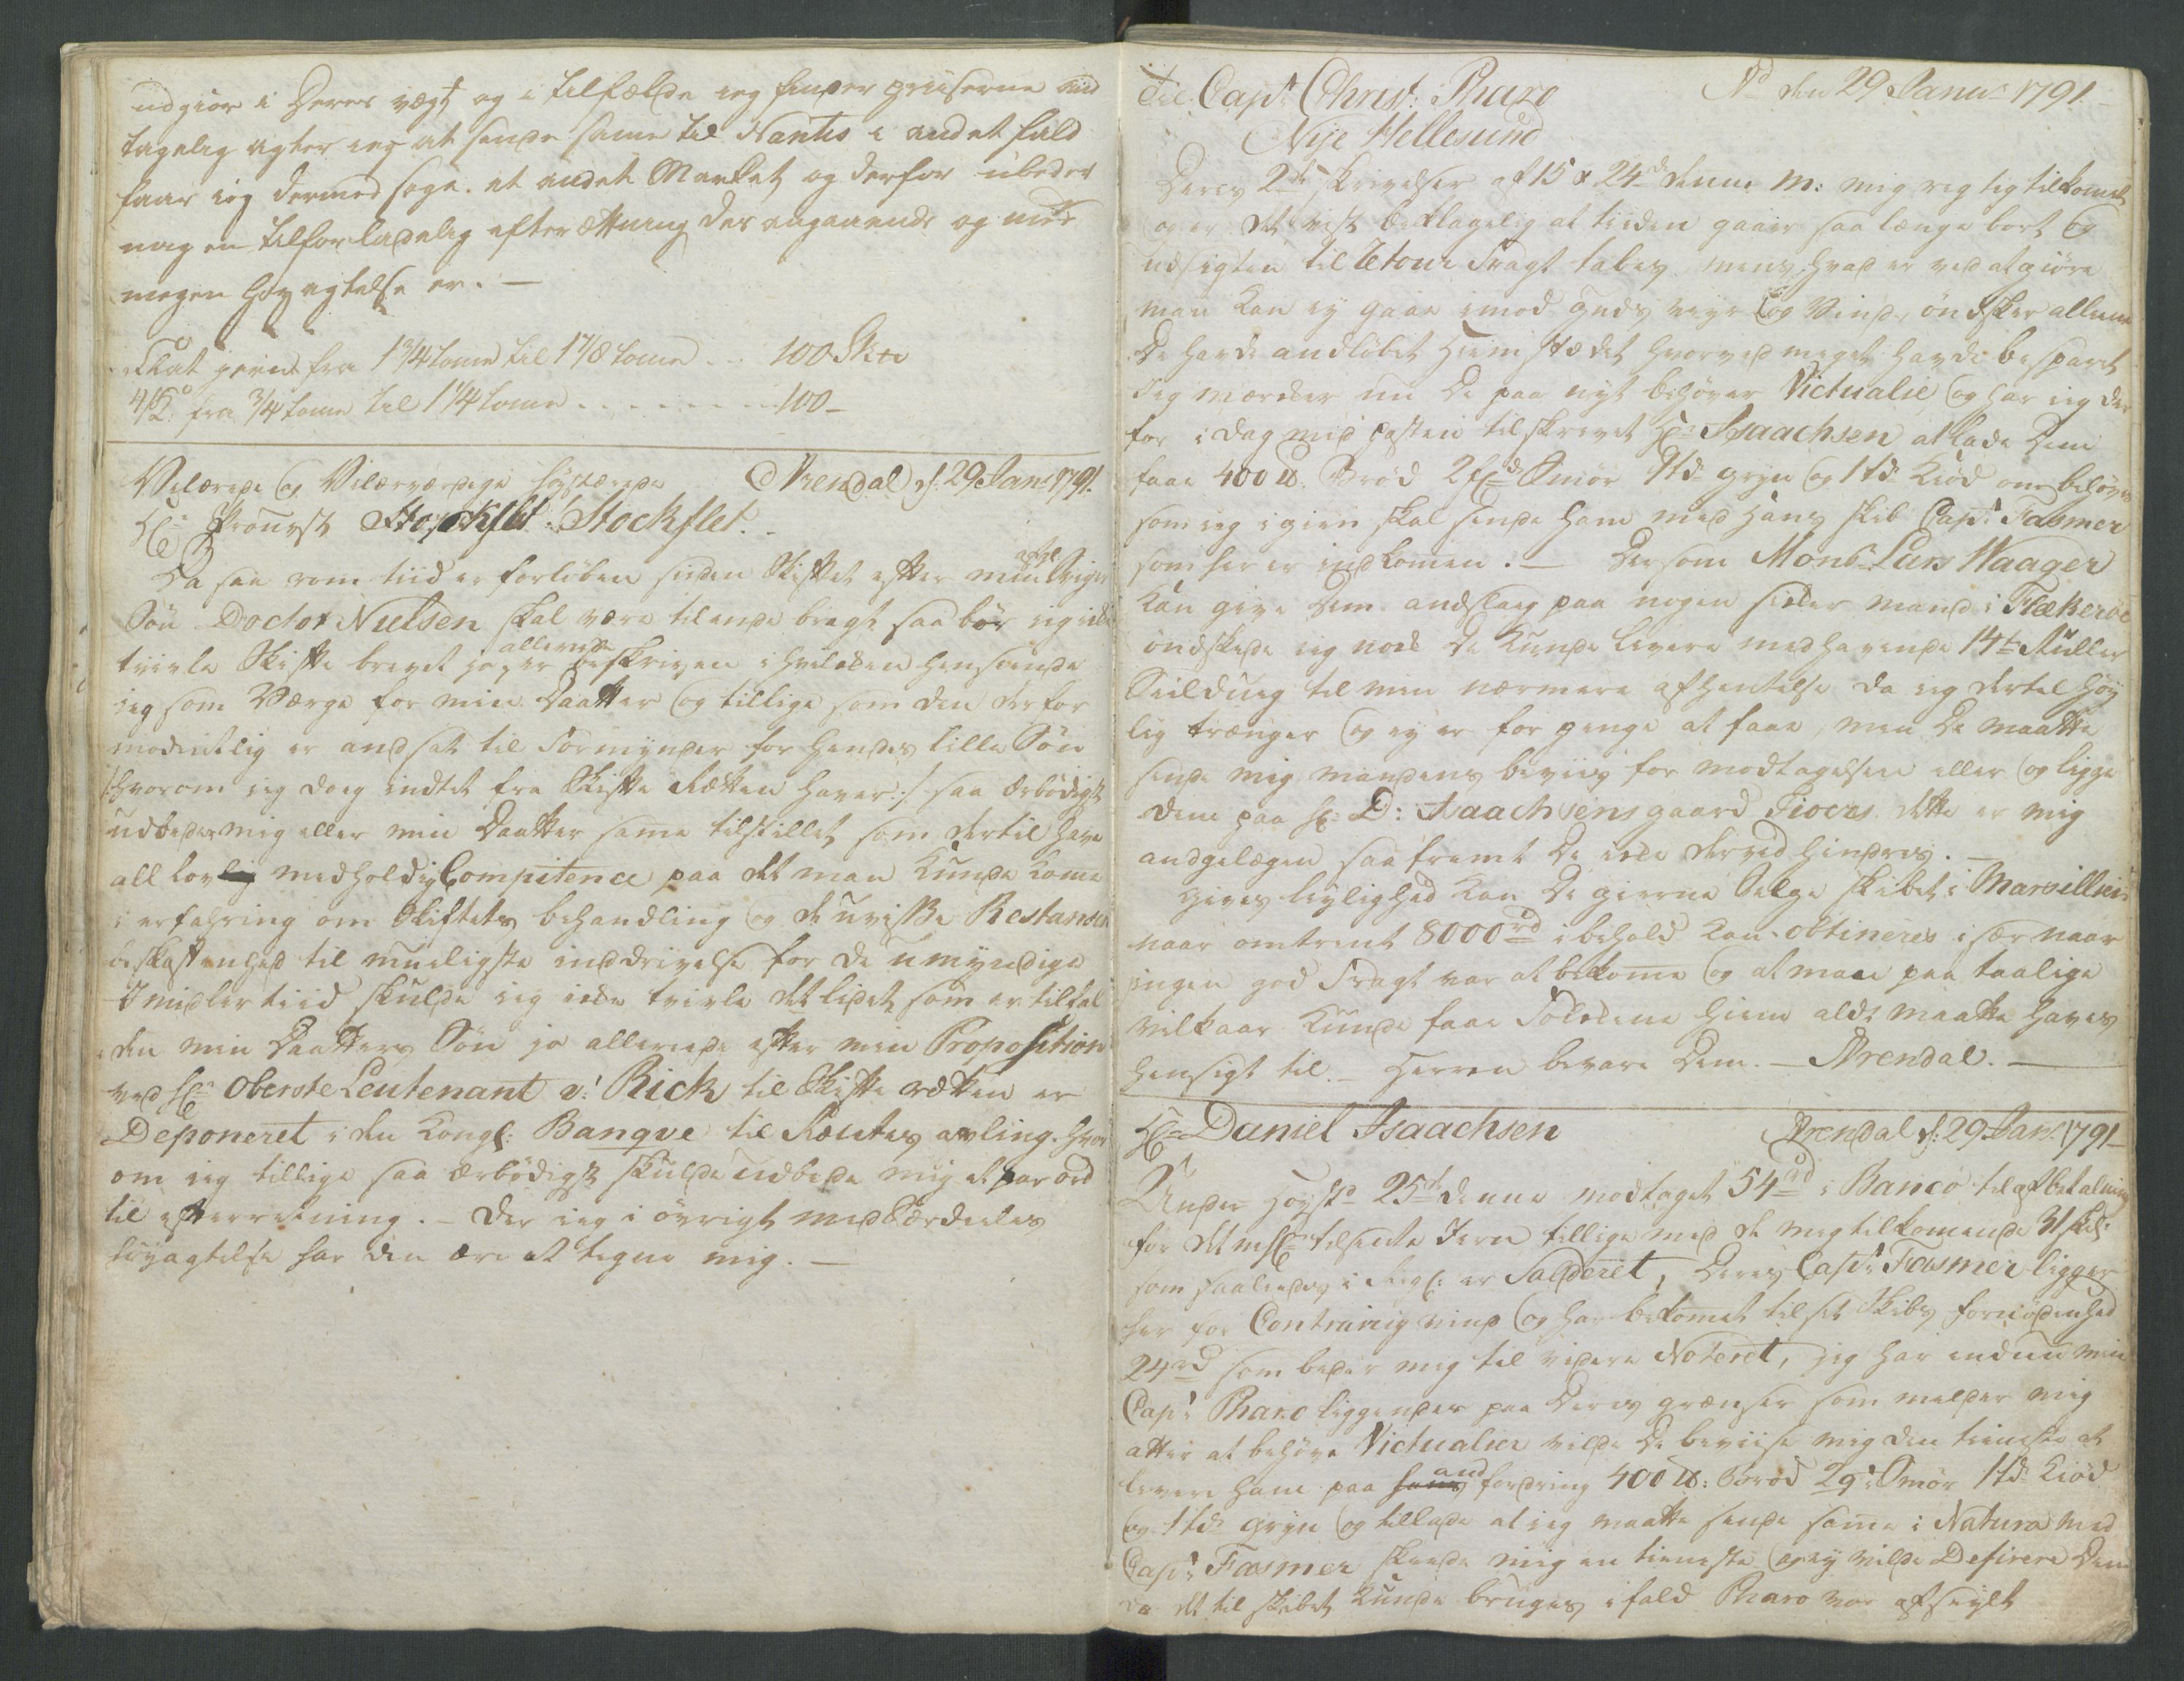 udgiør i Deres vægt og i tilfælde ieg finder priiserne and
tagelig agter ieg at sende same til Nantes i andet fald
faar ieg dermed søge et andet Market og derfor udbeder
mig en tilforladelig efterrættning des angaaende og med
megen høyagtelse er. —
Flat jern fra 1 3/4 tome til 1 7/8 tome ... 100 Sk℔
4/K do fra 3/4 tome til 1 1/4 tome ......... 100 —
Velærede og Velærværdige høystærede Arendal d: 29 Janr 1791.
Hr Prouvst Stockflet.
Da saa rom tiid er forløben siden Skiftet efter min afg: Sviger
Søn Doctor Nielsen skal være tilende bragt saa bør ieg icke
tvivle Skifte brevet jo er allerede beskreven i hvilcken henseende
ieg som Værge for min Daatter og tillige som den der for
modentlig er andsat til Formynder for hendes lille Søn
/:hvorom ieg dog indtet fra Skifte Retten haver:/ saa ærbødigst
udbeder mig eller min Daatter same tilstillet som dertil have
all lov medholdig Compitence paa det man kunde kome
i erfahring om Skiftets behandling og de uvisse Restancers
beskaffenhed til mueligste inddrivelse for de umyndige
Imidlertiid skulde ieg icke tvivle det lidet som er tilfal
den min Daatters Søn jo allerede efter min Proposition
ved Hr Oberste Leutenant v: Rick til Skifte retten er
Deponeret i den Kongl: Banqve til Rentes avling. hvor
om ieg tillige saa ærbødigst skulde udbede mig et par ord
til efterretning. – Der ieg i øvrigt med særdeeles
høyagtelse har den ære at tegne mig. —
Til Capt Christ: Pharo Ad den 29 Janur 1791. —
Nye Hellesund
Deres 2de skrivelser af 15 & 24de denne M: mig rigtig tilkomet
og er det vist beklagelig at tiiden gaaer saa længe bort og
udsigten til Retour Fragt tabes, mens hvad er ved at giøre
man kan ey gaae imod Guds veyr og Vind, øndsker allene
De havde andløbet Hiem stædet hvorved meget havde besparet
Jeg mærcker nu De paa nyt behøver Victualie og har ieg der
for i Dag med Posten tilskrevet Hr Isaachsen at lade Dem
faae 400 ℔. Brød 2 fr Smør 1 td gryn og 1 td Kiød om behøves
som ieg igien skal sende ham med hans skib Capt Fasmer
som her er indkomen. — Dersom Monsr Lars Waager
kan give Dem andslag paa nogen sicker mand i Flækerøe
øndskede ieg nock De kunde levere medhavende 14 Ruller
Seildueg til min nærmere afhentelse da ieg dertil høy
lig trænger og ey er for penge at faae, men De maatte
sende mig mandens beviis for modtagelsen eller og ligge
dem paa Hr D: Isaachsens gaard Fioers. dette er mig
andgelægen saafremt De icke derved hindres. —
Gives leylighed kan De gierne Selge skibet i Marseillien
naar omtrent 8000 rd i behold kan obtineres i sær naar
ingen god Fragt var at bekome og at man paa taalige
vilkaar kunde faae Folckene hiem alds maatte haves
hensigt til. – Herren bevare Dem. — Arendal. —
Hr Daniel Isaachsen Arendal d: 29 Janr 1791 —
Under Høystd 25de denne modtaget 54 rd i Banco til afbetaling
for det mhr tilsendte Jern tillige med de mig tilkomende 31 sk:
som saaledes i Regl: er Salderet, Deres Capt: Fasmer ligger
her for Contrarig vind og har bekomet til sit Skibs fornødenhed
24 rd som beder mig til videre Noteret, jeg har endnu min
Capt Pharo liggendes paa Deres grænser som melder mig
atter at behøve Victualier vilde De beviise mig den tieneste at
levere ham paa hans andfordring 400 ℔: Brød 2 g: Smør 1 td Kiød
og 1 td gryn og tillade at ieg maatte sende same i Natura med
Capt: Fasmer skeede mig en tieneste og ey vilde Desirere Dem
da det til skibet kunde bruges i fald Pharo var afseylt